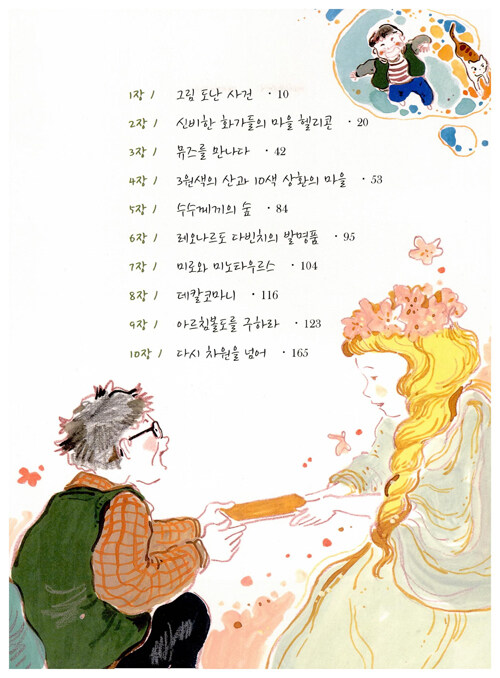 1장 / 그림 도난 사건 · 10
2장 / 신비한 화가들의 마을 헬리콘 · 20
3장 / 뮤즈를 만나다 · 42
4장 / 3원색의 산과 10색 상환의 마을 · 53
5장 / 수수께끼의 숲 · 84
6장 / 레오나르도 다빈치의 발명품 · 95
7장 / 미로와 미노타우르스 · 104
8장 / 데칼코마니 · 116
9장 / 아르침볼도를 구하라 · 123
10장 / 다시 차원을 넘어 · 165